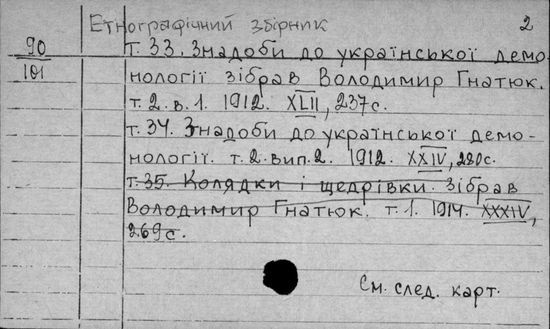 Етнографічний збірник
2
90
101
т. 33. Знадоби до української демо-
нології зібрав Володимир Гнатюк.
т. 2. в. 1. 1912. XLII, 237 с.
т. 34. Знадоби до української демо-
нології. т. 2. вип. 2. 1912. XXIV, 280с.
т. 35. Колядки і щедрівки. Зібрав
Володимир Гнатюк. т. 1. 1914. XXXIV,
269 с.
См. след. карт.